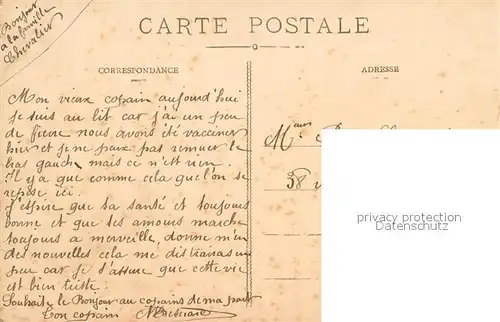 Bonjour
a la famille
Chevalier
CARTE POSTALE
CORRESPONDANCE
ADRESSE
Mon vieux copain aujourd'hui
je suis au lit car j'ai un peu
de fievre nous avons été vacciner
hier et je ne peux pas remuer le
bas gauche mais ce n'est rien.
Il y a que comme cela que l'on se
repose ici.
J'espère que ta santé et toujours
bonne et que tes amours marche
toujours a merveille, donne m'en
des nouvelles cela me distraira un
peu car je t'assure que cette vie
est bien triste.
Souhaite le Bonjour au copains de ma part
Ton copain
M
58
privacy protection
Datenschutz